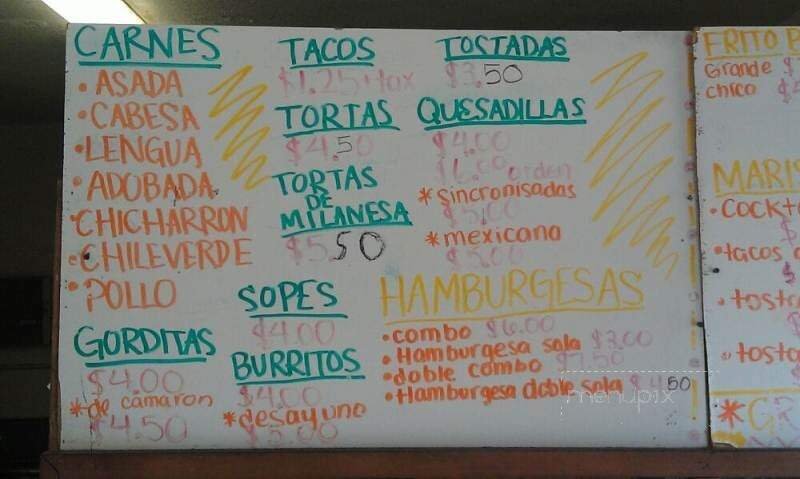 CARNES
• ASADA
• CABESA
• LENGUA
• ADOBADA
• CHICHARRON
• CHILEVERDE
• POLLO
GORDITAS
$4.00
*de camaron
$4.50
TACOS
$1.25+tax
TORTAS
$4.50
TORTAS
DE
MILANESA
$5.50
SOPES
$4.00
BURRITOS
$4.00
*desayuno
$5.00
TOSTADAS
$3.50
QUESADILLAS
$4.00
$6.00 orden
*sincronisadas
$5.00
*mexicana
$5.00
HAMBURGESAS
• combo $6.00
• Hamburgesa sola $3.00
• doble combo $7.50
• Hamburgesa doble sola $4.50
menupix
FRITO
Grande $
chico $
MARI
• COCKT
• tacos
• tost
• tosto
*GR